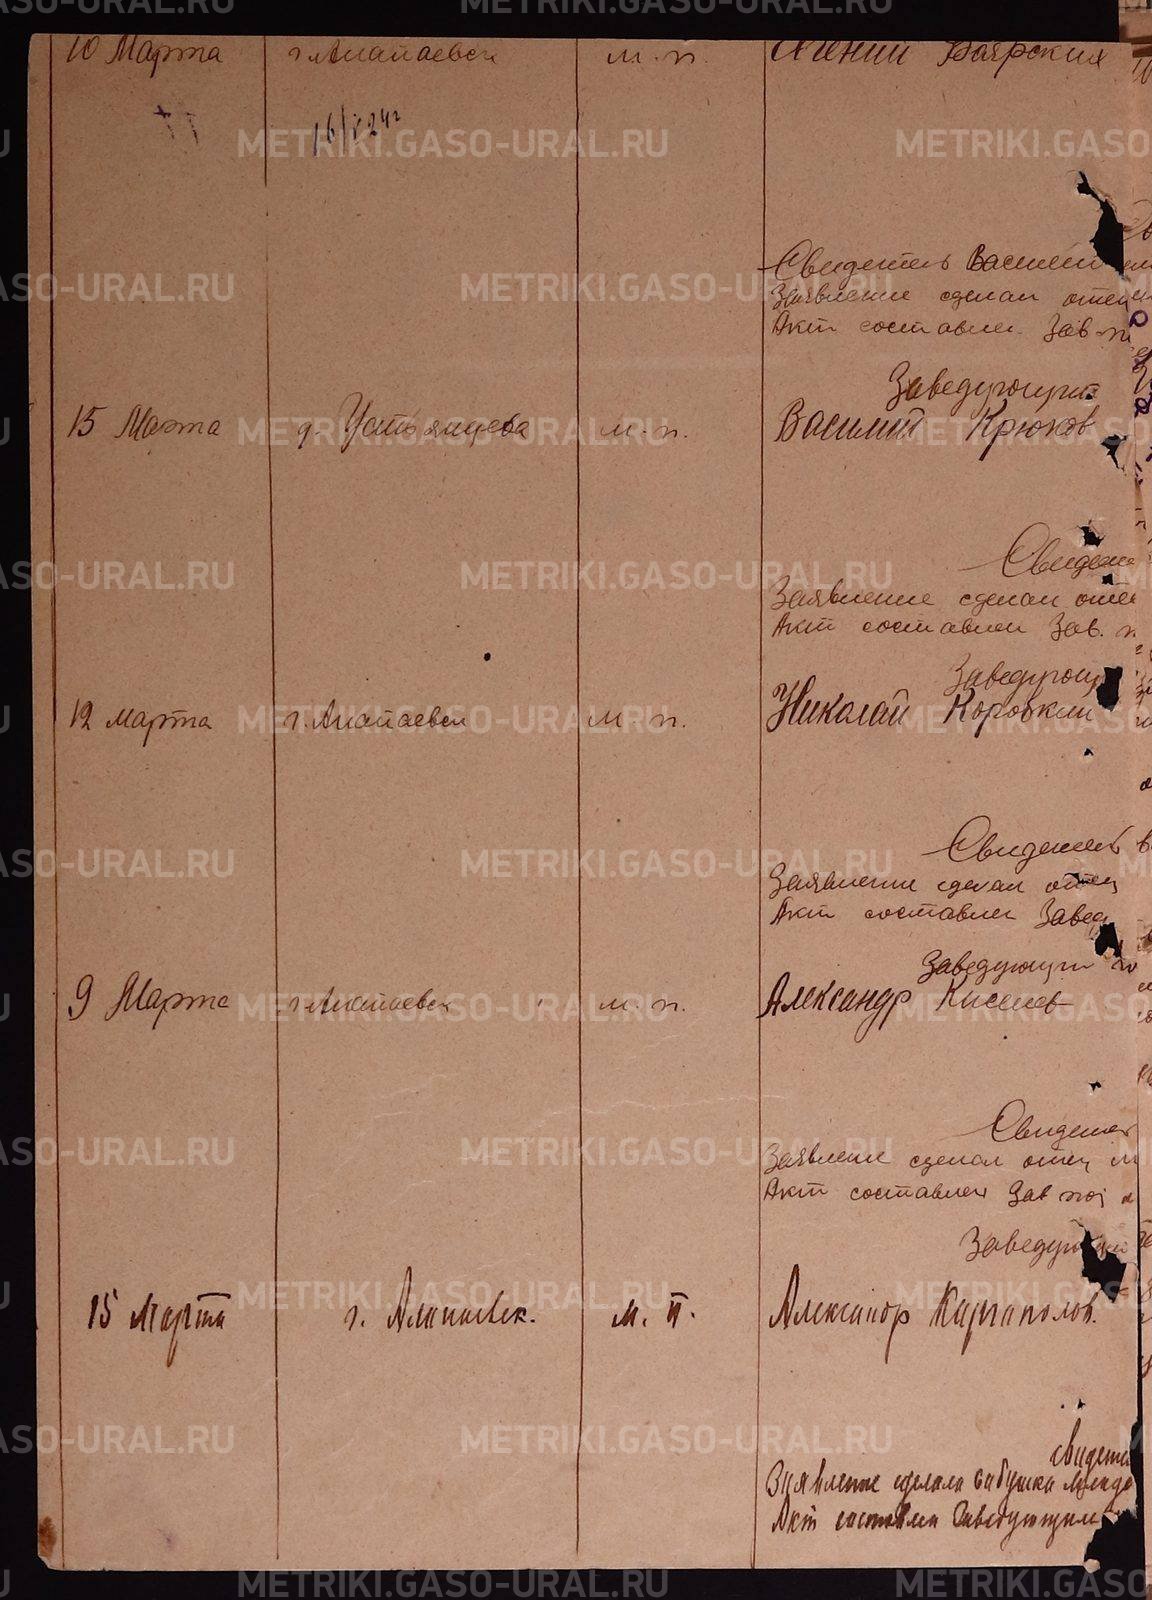 10 Марта г. Алапаевск м. п. Евгений Боярских
Свидетель Василий
Заявление сделал отец
Акт составлен. Зав.
Заведующий
15 Марта д. Устьянцева м. п. Василий Крюков
Свидете
Заявление сделал отец
Акт составлен Зав.
Заведующ
12 марта г. Алапаевск м. п. Николай Коробкин
Свидетель
Заявление сделал отец
Акт составлен Завед
Заведующий
9 Марта г. Алапаевск м. п. Александр Киселев
Свидетел
Заявление сделал отец
Акт составлен Зав
Заведующий
15 Марта г. Алапаевск. м. п. Александр Каргаполов.
Свидете
Заявление сделала бабушка младе
Акт составлен Заведующим
METRIKI.GASO-URAL.RU